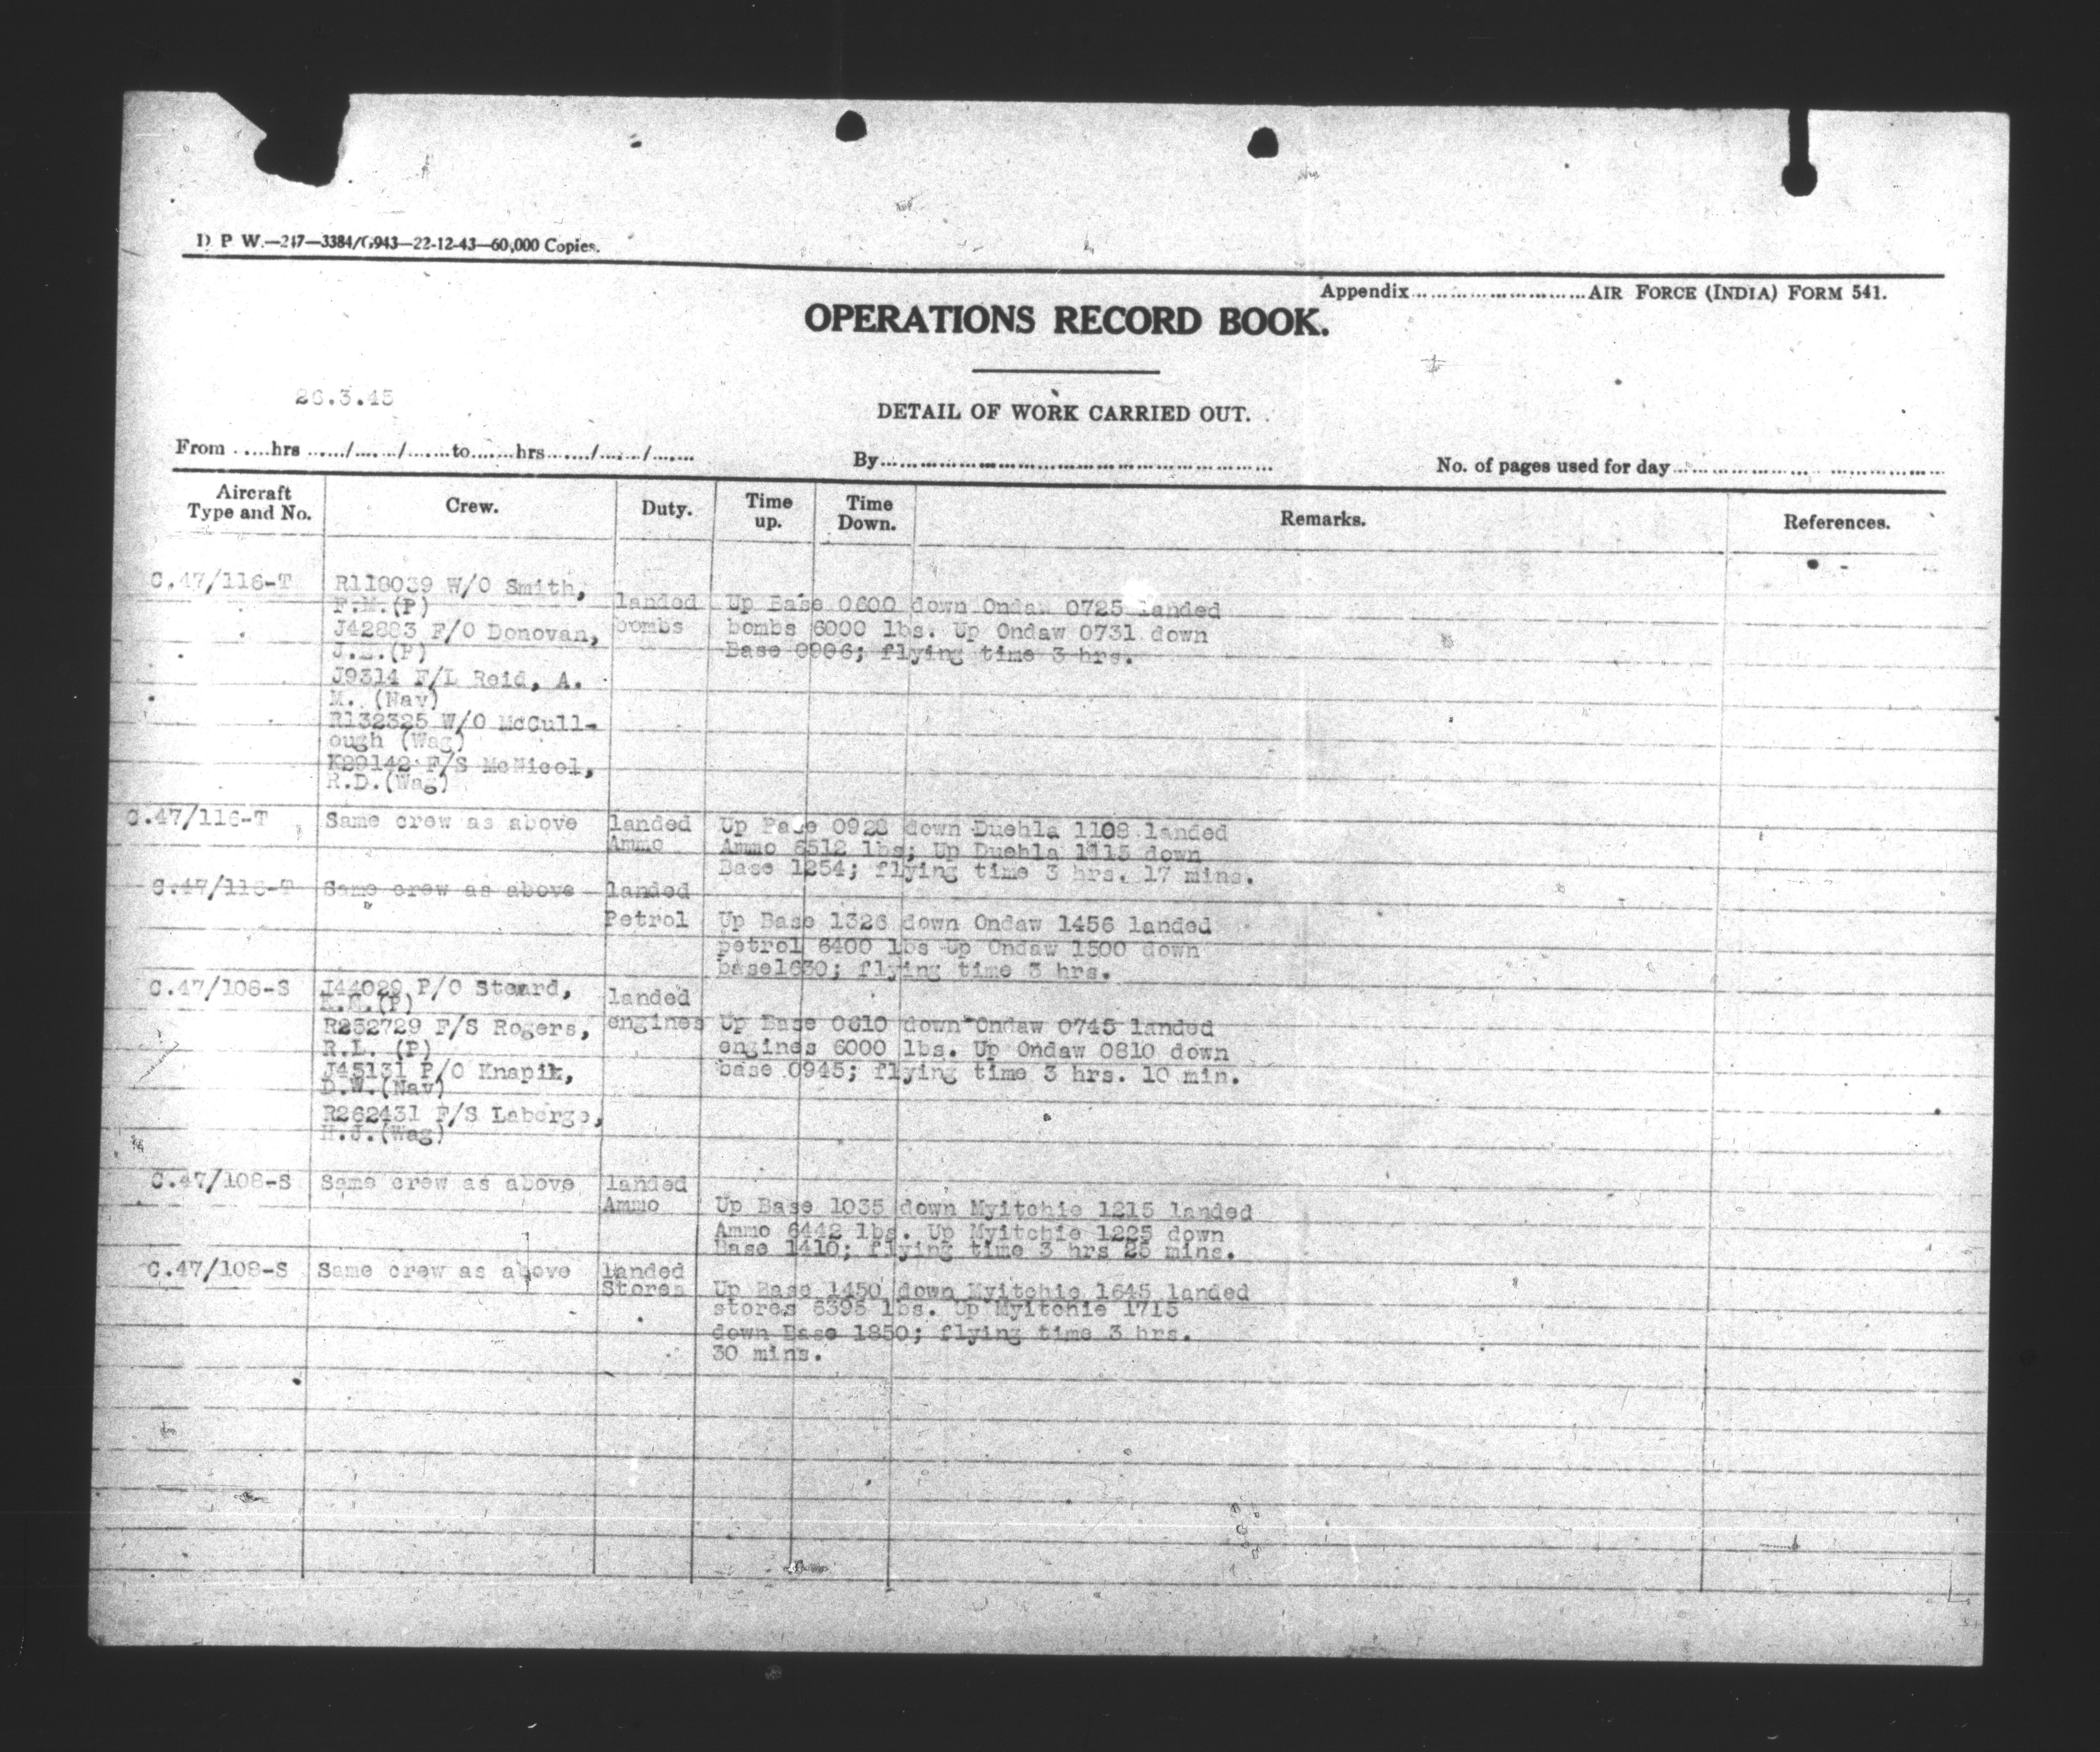 D. P. W.—247—3384/G943—22-12-43—60,000 Copies.
Appendix..............................AIR FORCE (INDIA) FORM 541.
OPERATIONS RECORD BOOK.
26.3.45
DETAIL OF WORK CARRIED OUT.
From ......hrs ....../....../.......to.......hrs......./....../.......
By............................................................
No. of pages used for day........................................
Aircraft Type and No. Crew. Duty. Time up. Time Down. Remarks. References.
C.47/116-T
R118039 W/O Smith,
F.M.(P)
J42883 F/O Donovan,
(P)
J9314 F/L Reid, A.
M. (Nav)
R132325 W/O McCull-
ough (Wag)
F/S McNicol,
R.D.(Wag)
landed
bombs
Up Base 0600 down Ondaw 0725 landed
bombs 6000 lbs. Up Ondaw 0731 down
Base 0906; flying time 3 hrs.
C.47/116-T Same crew as above
landed
Ammo
Up 0928 down Duehla 1108 landed
Ammo 6512 lbs; Up Duehla 1115 down
Base 1254; flying time 3 hrs. 17 mins.
C.47/116-T Same crew as above
landed
Petrol
Up Base 1326 down Ondaw 1456 landed
petrol 6400 lbs Up Ondaw 1500 down
base1630; flying time 3 hrs.
C.47/108-S
J44029 P/O Steward,
(P)
R252729 F/S Rogers,
R.L. (P)
J45131 P/O Knapik,
D.W.(Nav)
R262431 F/S Laberge,
H.J.(Wag)
landed
engines
Up Base 0610 down Ondaw 0745 landed
engines 6000 lbs. Up Ondaw 0810 down
base 0945; flying time 3 hrs. 10 min.
C.47/108-S Same crew as above
landed
Ammo
Up Base 1035 down Myitchie 1215 landed
Ammo 6442 lbs. Up Myitchie 1225 down
Base 1410; flying time 3 hrs 25 mins.
C.47/108-S Same crew as above
landed
Stores
Up Base 1450 down Myitchie 1645 landed
stores 6395 lbs. Up Myitchie 1715
down Base 1850; flying time 3 hrs.
30 mins.